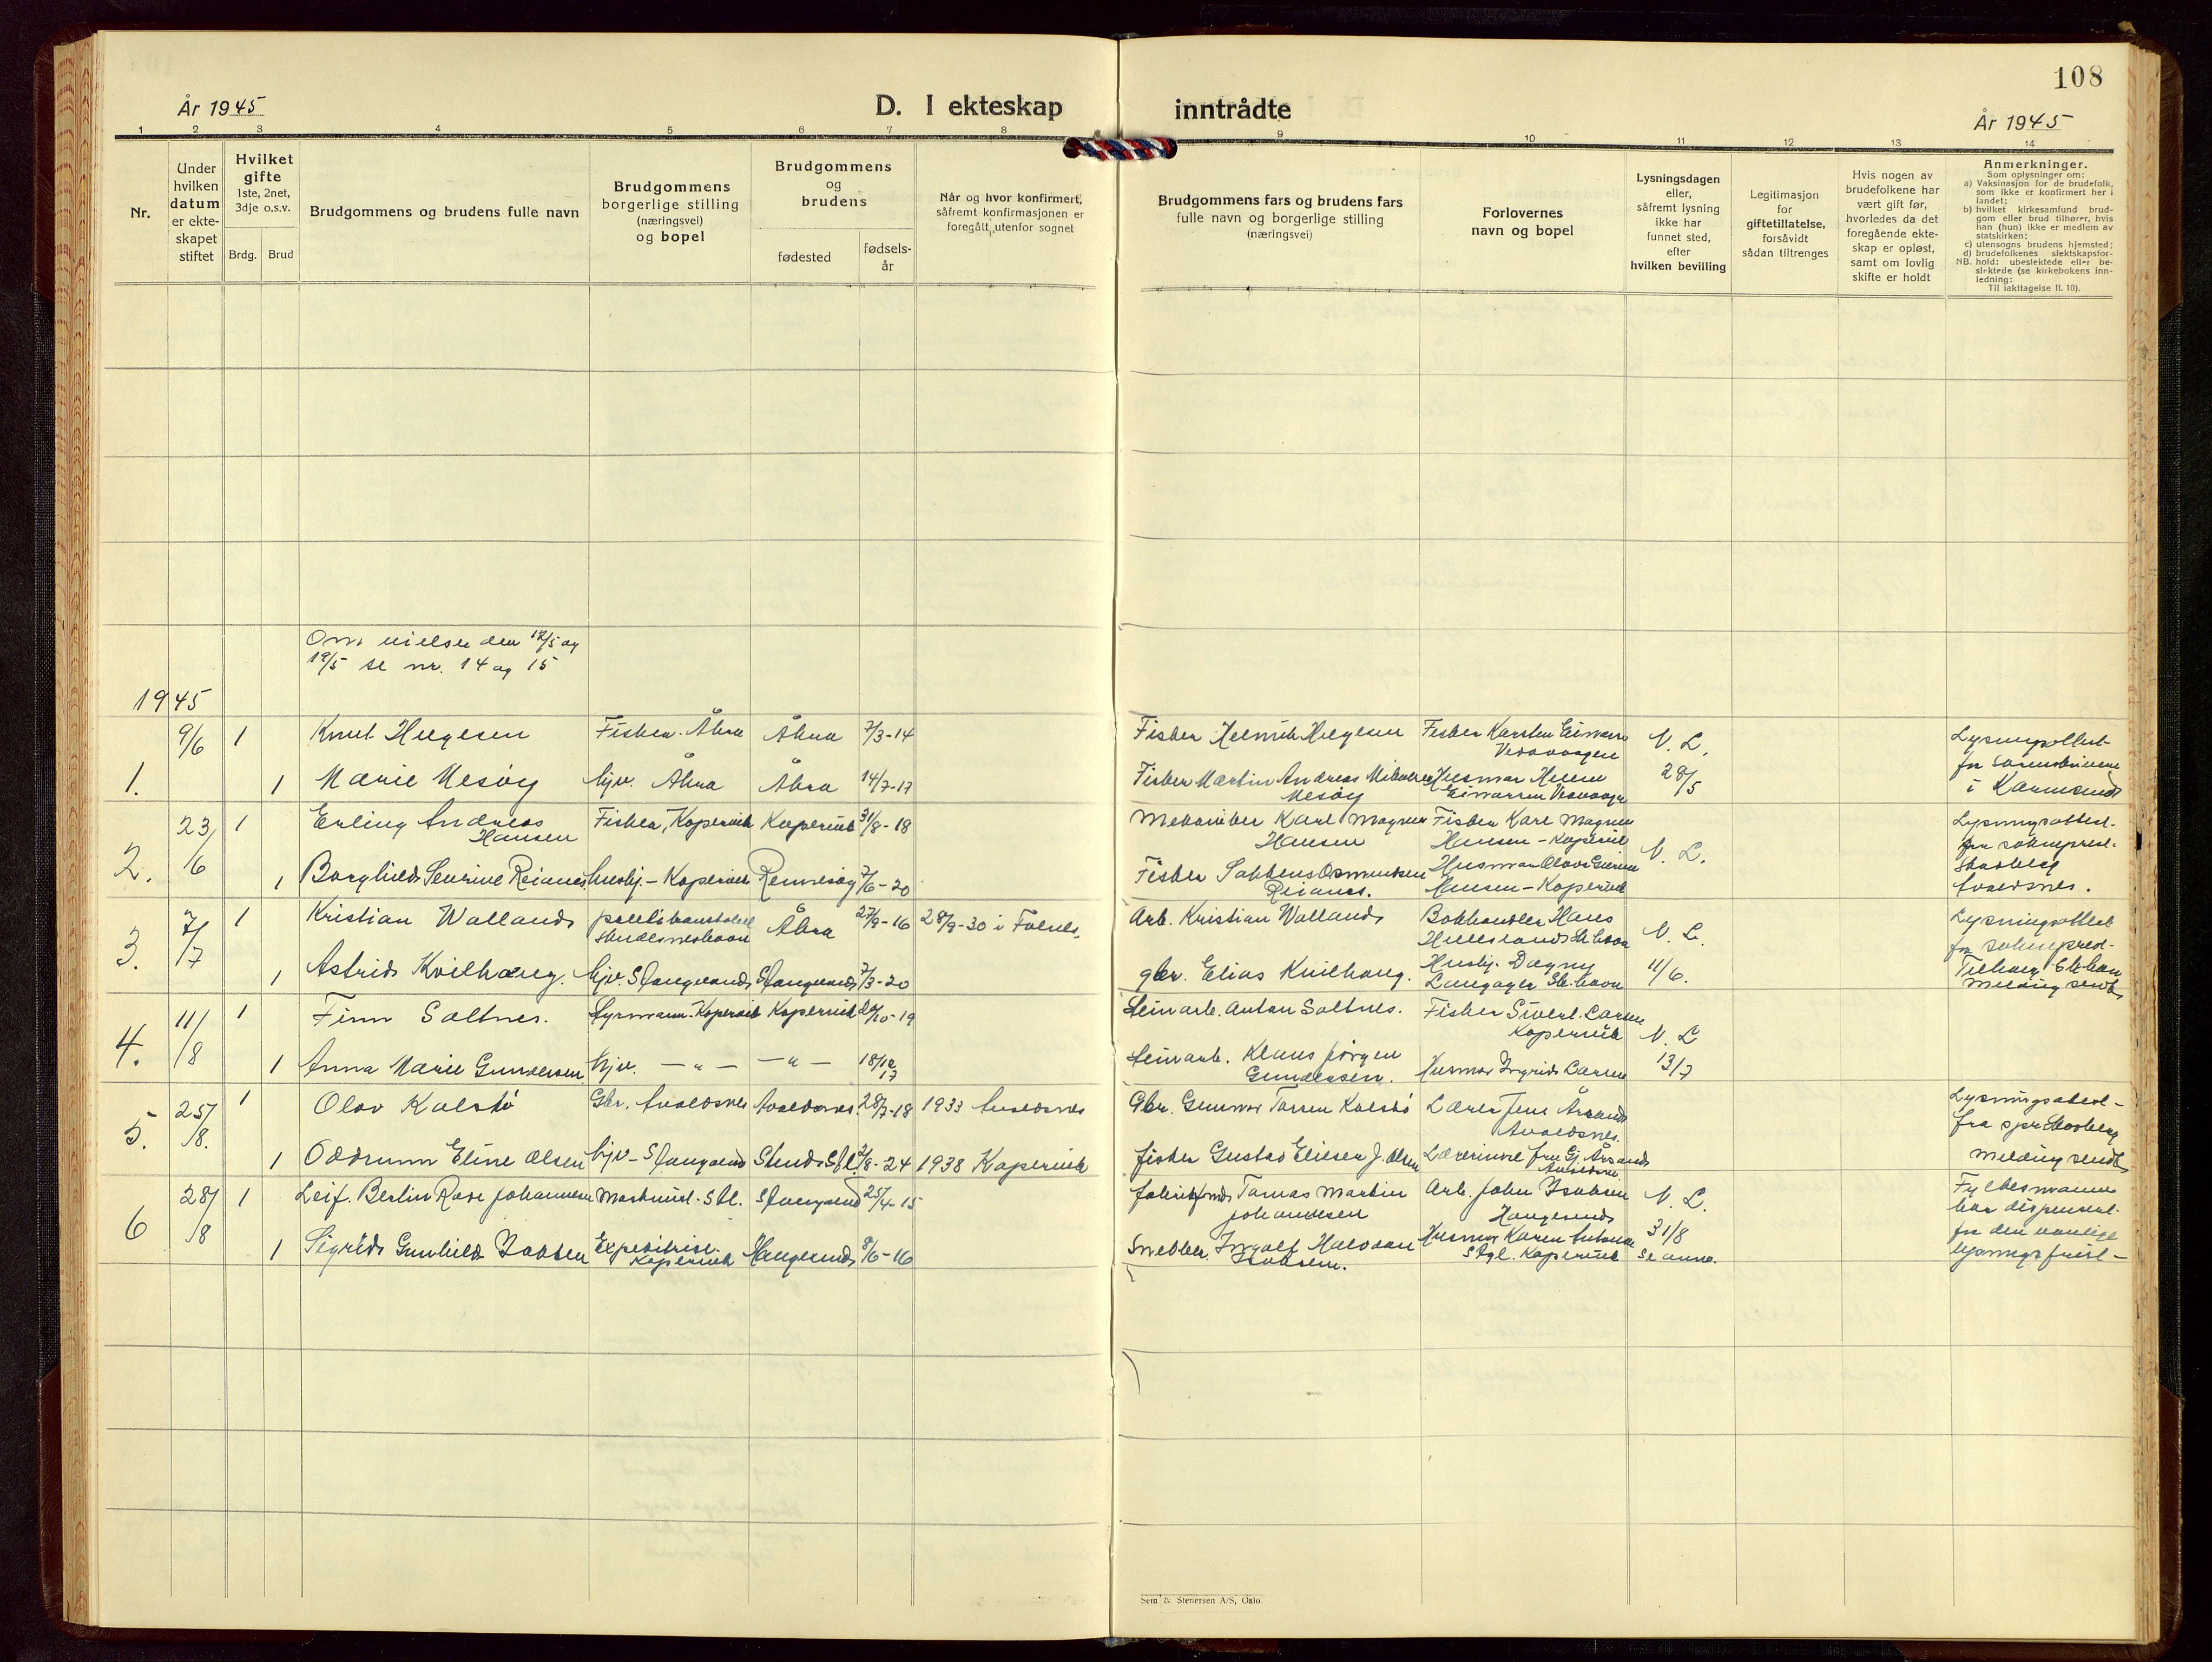 108
År 1945
D. I ekteskap inntrådte
År 1945
1 2 3 4 5 6 7 8 9 10 11 12 13 14
Nr.
Under
hvilken
datum
er ekte-
skapet
stiftet
Hvilket
gifte
1ste, 2net,
3dje o.s.v.
Brdg. Brud
Brudgommens og brudens fulle navn
Brudgommens
borgerlige stilling
(næringsvei)
og bopel
Brudgommens
og
brudens
fødested
fødsels-
år
Når og hvor konfirmert,
såfremt konfirmasjonen er
foregått utenfor sognet
Brudgommens fars og brudens fars
fulle navn og borgerlige stilling
(næringsvei)
Forlovernes
navn og bopel
Lysningsdagen
eller,
såfremt lysning
ikke har
funnet sted,
efter
hvilken bevilling
Legitimasjon
for
giftetillatelse,
forsåvidt
sådan tiltrenges
Hvis nogen av
brudefolkene har
vært gift før,
hvorledes da det
foregående ekte-
skap er opløst,
samt om lovlig
skifte er holdt
Anmerkninger.
Som oplysninger om:
a) Vaksinasjon for de brudefolk,
som ikke er konfirmert her i
landet;
b) hvilket kirkesamfund brud-
gom eller brud tilhører, hvis
han (hun) ikke er medlem av
statskirken;
c) utensogns brudens hjemsted;
d) brudefolkenes slektskapsfor-
NB. hold: ubeslektede eller be-
slektede (se kirkebokens inn-
ledning:
Til iakttagelse II. 10).
Om vielser den 12/5 og
19/5 se nr. 14 og 15
1945
1.
9/6 1 Knut Helgesen Fisker. Åkra Åkra 7/3-14
Fisker Helmik Helgesen Fisker Karsten Einarsen
Vedavaagen
N. L.
29/5
1 Marie Mesöy Hjv. Åkra Åkra 14/7-17
Fisker Martin Andreas Mikalsen
Mesöy
Husmor Helene
Einarsen Vedavaagen
Lysningsattest
fra sorenskriveren
i Karmsund
2.
23/6 1 Erling Andreas
Hansen
Fisker, Kopervik Kopervik 31/8-18
Karl Magnus
Hansen
Fisker Kare Magnus
Hansen - Kopervik
N. L.
1 Borghild Severine Reianes husbj. - Kopervik Rennesøy 7/6-20
Fisker Osmundsen
Reianes.
Husmor
Hansen - Kopervik
Lysningsattest.
fra sokneprest.
Skadberg
Avaldsnes.
3.
7/7 1 Kristian Walland politikonstabel
Skudesneshavn
Åkra 27/9-16 28/9-30 i Falnes.
Arb. Kristian Walland Bokhandler Hans
Sk. havn
N. L.
11/6.
1 Astrid Kvilhaug. Hjv. Stangeland Stangeland 7/3-20
gbr. Elias Kvilhaug. Husbj. Dagny
Langager Sk. havn
Lysningsattest
fra soknepred-
Melding sendt
4.
11/8 1 Finn Saltnes. Styrmann. Kopervik Kopervik 24/10-19
Steinarb. Anton Saltnes. Fisker Sivert Larsen
Kopervik
N. L
13/7
1 Anna Marie Gundersen Hjv. — " — — " — 18/12 17
Steinarb. Klaus Jörgen
Gundersen.
Husmor Ingrid Larsen
5.
25/8. 1 Olav Kalstö Gbr. Avaldsnes Avaldsnes. 28/7-18 1933 Avaldsnes
Gbr. Gunnar Kalstö Lærer Jens Årsand
Avaldsnes.
1 Oddrunn Eline Olsen Hjv - Stangeland 2/8-24 1938 Kopervik
fisker Gustav Eliesen J. Olsen Lærerinne fru Gj Årsand
Avaldsnes
Lysningsattest -
fra spr. Skadberg
Melding sendt
6
28/8 1 Leif. Berlin Johannesen Maskinist - Stl. Stangeland 25/4-15
Tomas Martin
Johannesen
Arb. John Isaksen
Haugesund
N. L.
31/8
Se anm.
1 Sigrid Gunhild Isaksen Expeditrise.
Kopervik
Haugesund 8/6-16
Snekker. Ingolf Halvdan
Isaksen.
Husmor Karen
Stgl. Kopervik
Fylkesmannen
har dispensert.
fra den vanlige
lysningsfrist -
Sem & Stenersen A/S, Oslo.